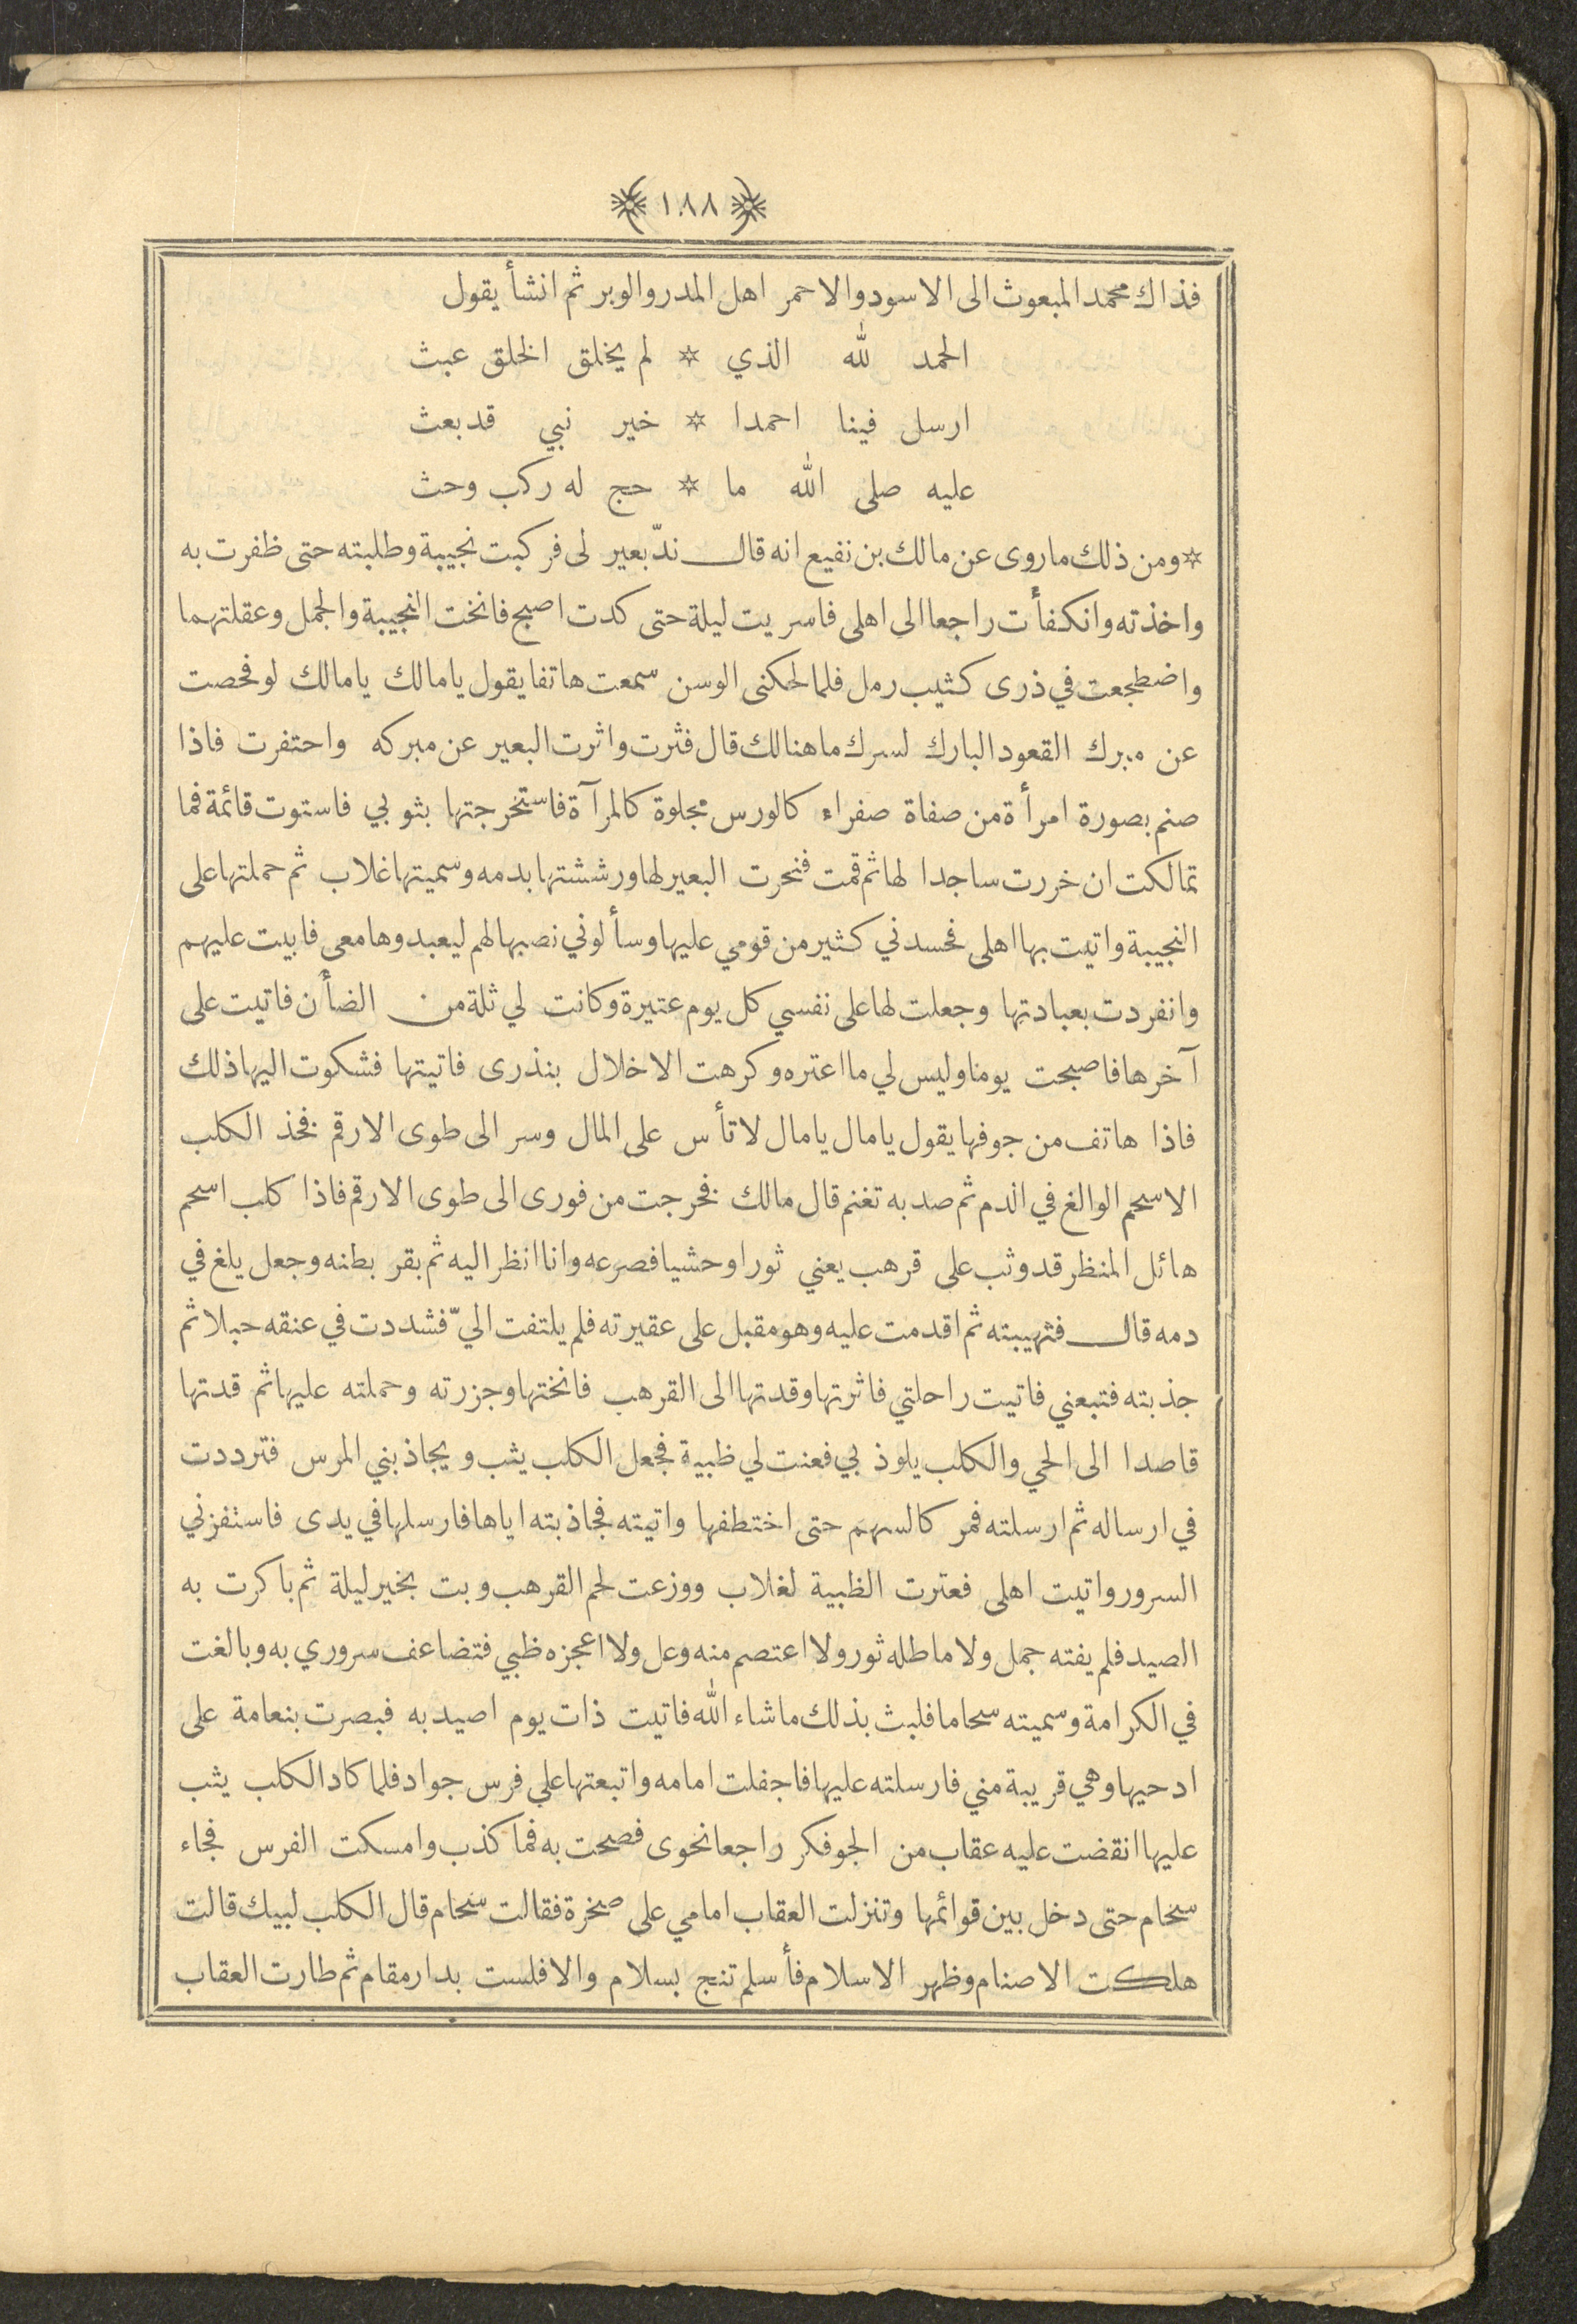 ١٨٨
فذاك محمد المبعوث الى الاسود والاحمر اهل المدر والوبر ثم انشأ يقول
الحمد لله الذي * لم يخلق الخلق عبث
ارسل فينا احمدا * خير نبي قد بعث
عليه صلى الله ما * حج له ركب وحث
* ومن ذلك ماروى عن مالك بن نفيع انه قال ندّ بعير لى فركبت نجيبة وطلبته حتى ظفرت به
واخذته وانكفأت راجعا الى اهلى فاسريت ليلة حتى كدت اصبح فانخت النجيبة والجمل وعقلتهما
واضطجعت في ذرى كثيب رمل فلما لحكنى الوسن سمعت هاتفا يقول يامالك يامالك لو فحصت
عن مبرك القعود البارك لسرك ماهنالك قال فثرت واثرت البعير عن مبركه واحتفرت فاذا
صنم بصورة امرأة من صفاة صفراء كالورس مجلوة كالمرآة فاستخرجتها بثوبي فاستوت قائمة فما
تمالكت ان خررت ساجدا لها ثم قمت فنحرت البعير لها ورششتها بدمه وسميتها غلاب ثم حملتها على
النجيبة واتيت بها اهلى فحسدني كثير من قومي عليها وسألوني نصبها لهم ليعبدوها معى فابيت عليهم
وانفردت بعبادتها وجعلت لها على نفسي كل يوم عتيرة وكانت لي ثلة من الضأن فاتيت على
آخرها فاصبحت يوما وليس لي مااعتره وكرهت الاخلال بنذرى فاتيتها فشكوت اليها ذلك
فاذا هاتف من جوفها يقول يامال يامال لاتأس على المال وسر الى طوى الارقم فخذ الكلب
الاسحم الوالغ في الدم ثم صد به تغنم قال مالك فخرجت من فورى الى طوى الارقم فاذا كلب اسحم
هائل المنظر قد وثب على قرهب يعني ثورا وحشيا فصرعه وانا انظر اليه ثم بقر بطنه وجعل يلغ في
دمه قال فتهيبته ثم اقدمت عليه وهو مقبل على عقيرته فلم يلتفت اليّ فشددت في عنقه حبلا ثم
جذبته فتبعني فاتيت راحلتي فاثرتها وقدتها الى القرهب فانختها وجزرته وحملته عليها ثم قدتها
قاصدا الى الحي والكلب يلوذ بي فعنت لي ظبية فجعل الكلب يثب ويجاذبني المرس فترددت
في ارساله ثم ارسلته فمر كالسهم حتى اختطفها واتيته فجاذبته اياها فارسلها في يدى فاستفزني
السرور واتيت اهلى فعترت الظبية لغلاب ووزعت لحم القرهب وبت بخير ليلة ثم باكرت به
الصيد فلم يفته جمل ولا ماطله ثور ولا اعتصم منه وعل ولا اعجزه ظبي فتضاعف سروري به وبالغت
في الكرامة وسميته سحاما فلبث بذلك ماشاء الله فاتيت ذات يوم اصيد به فبصرت بنعامة على
ادحيها وهي قريبة مني فارسلته عليها فاجفلت امامه واتبعتها على فرس جواد فلما كاد الكلب يثب
عليها انقضت عليه عقاب من الجو فكر راجعا نحوى فصحت به فما كذب وامسكت الفرس فجاء
سحام حتى دخل بين قوائمها وتنزلت العقاب امامي على صخرة فقالت سحام قال الكلب لبيك قالت
هلكت الاصنام وظهر الاسلام فأسلم تنج بسلام والا فلست بدار مقام ثم طارت العقاب